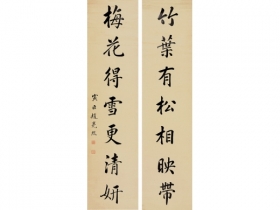 竹葉有松相映帶
梅花得雪更清妍